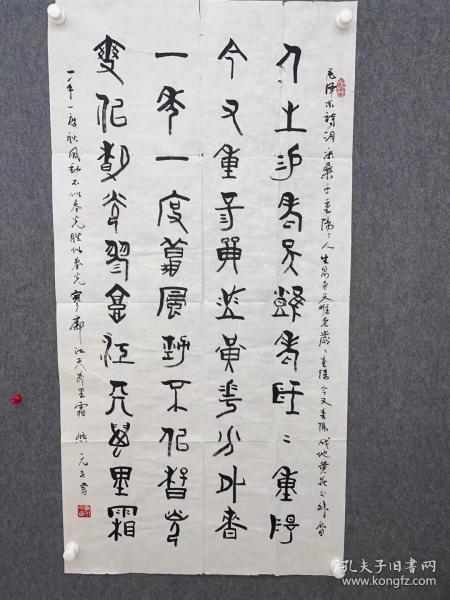 毛泽东诗词采桑子重陽人生易老天难老歲〻重陽今又重陽战地黄花分外香
人生易老天難老歲〻重陽
今又重陽戰地黃花分外香
一年一度秋風勁不似春光
勝似春光寥廓江天萬里霜
一年一度秋风劲不似春光胜似春光寥廓江天万里霜
孔夫子旧书网
www.kongfz.com